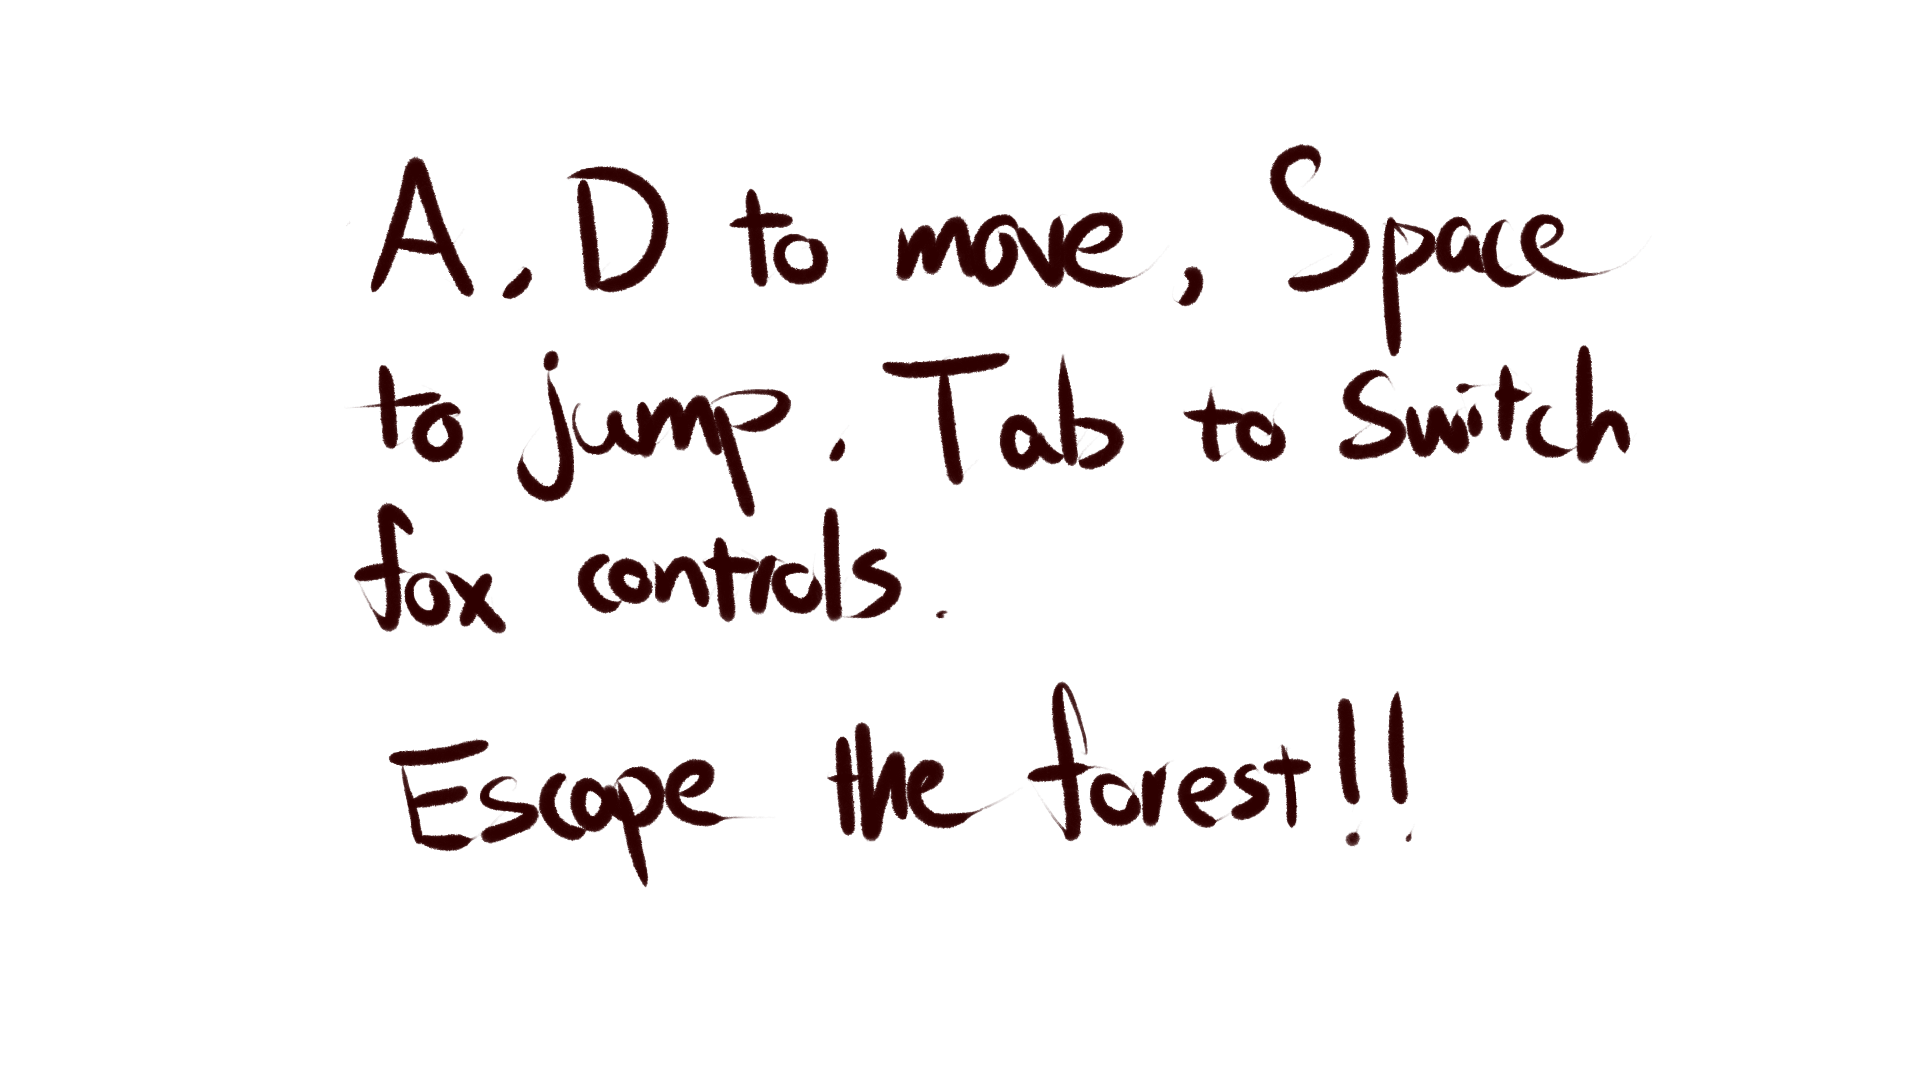 A, D to move, Space
to jump. Tab to switch
fox controls.
Escape the forest!!